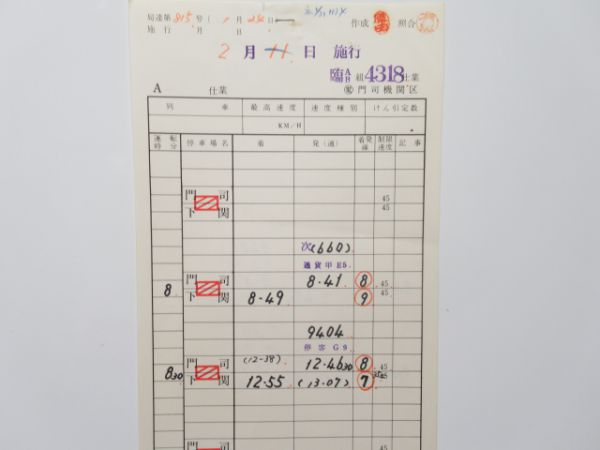 局達第 815 号 ( 1 月 24 日 作成 照合
施行 . 月 . 日.
2 月 11 日 施行
臨 A B 組 4318 仕業
A 仕業 門司機関区
列車 最高速度 速度種別 けん引定数
KM/H
運転時分 停車場名 着 発(通) 着発線 制限速度 記事
門司 45
下関 45
次(660)
通貨甲E5.
8 門司 8.41 8 45
下関 8.49 9 45
9404
停客G9.
830 門司 (12-38) 12.4630 8 45
下関 12.55 (13.07) 7
門司 45